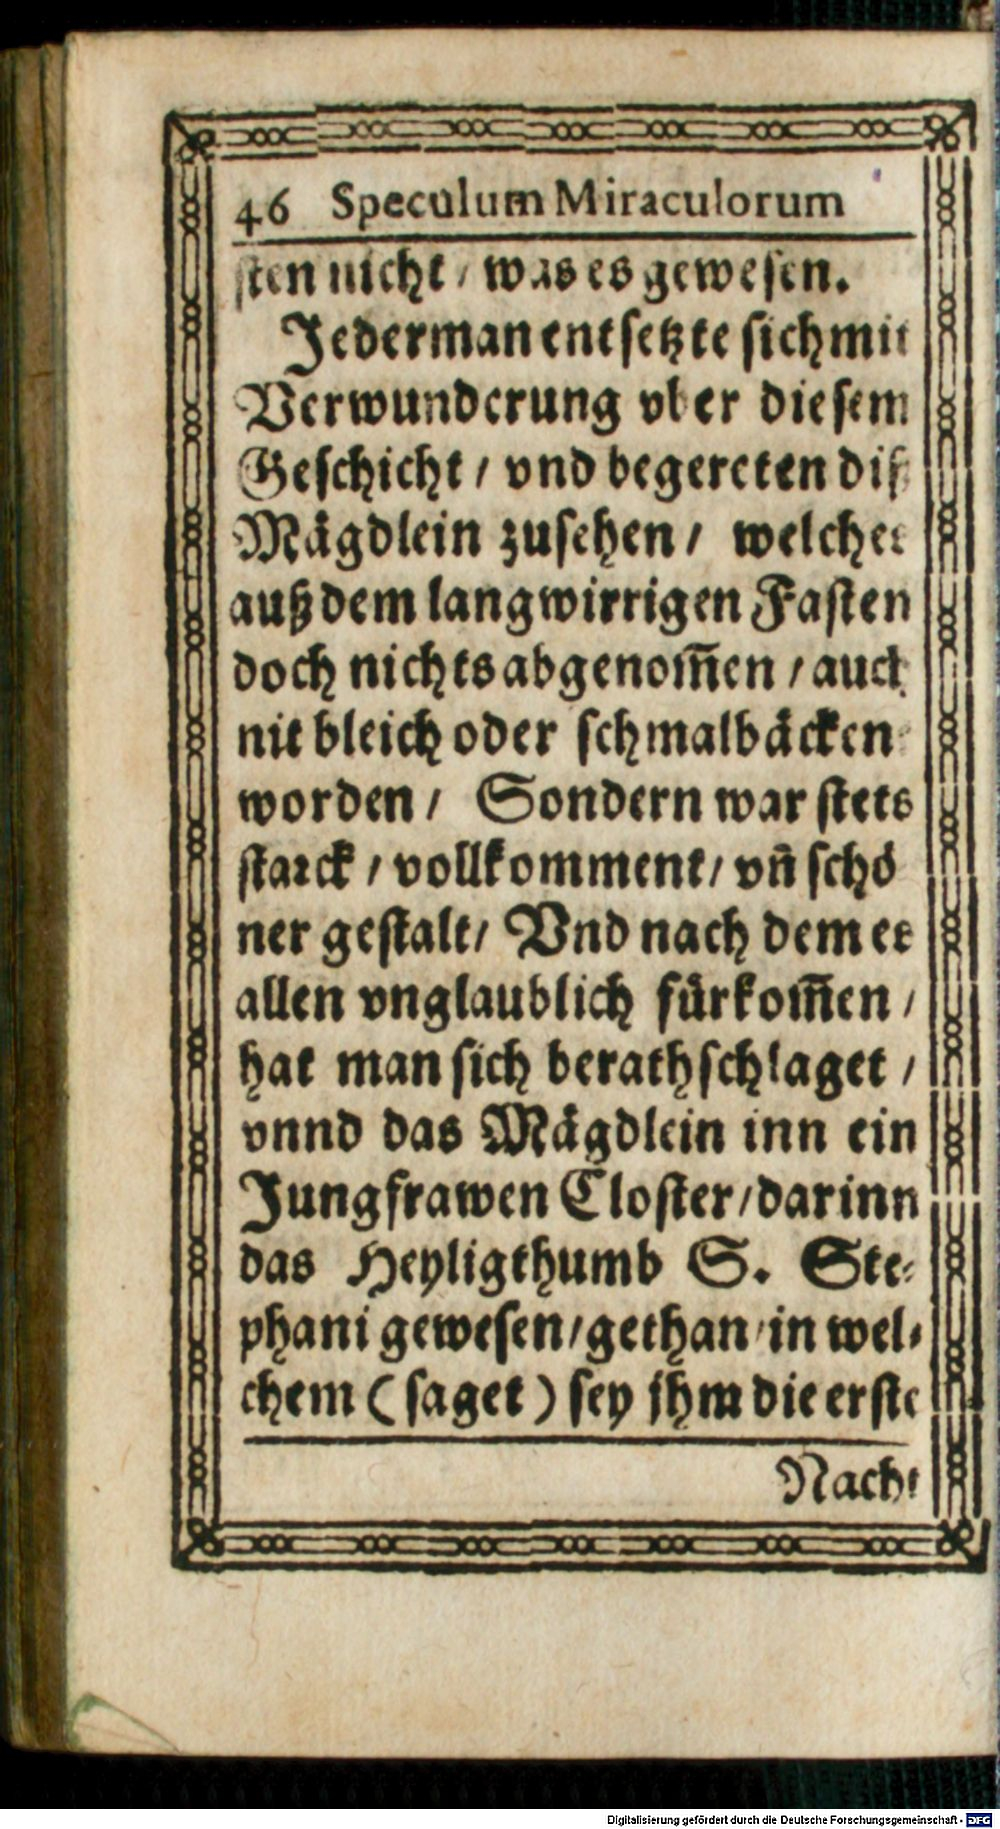 46 Speculum Miraculorum
sten nicht / was es gewesen.
Jederman entsetzte sich mit
Verwunderung vber diesem
Geschicht / vnd begereten diß
Mägdlein zusehen / welches
auß dem langwirrigen Fasten
doch nichts abgenom̃en / auch
nit bleich oder schmalbäcken
worden / Sondern war stets
starck / vollkomment / vñ schö
ner gestalt / Vnd nach dem es
allen vnglaublich fürkom̃en /
hat man sich berathschlaget /
vnnd das Mägdlein inn ein
Jungfrawen Closter / darinn
das Heyligthumb S. Ste-
phani gewesen / gethan / in wel-
chem (saget) sey jhm die erste
Nacht
Digitalisierung gefördert durch die Deutsche Forschungsgemeinschaft - DFG